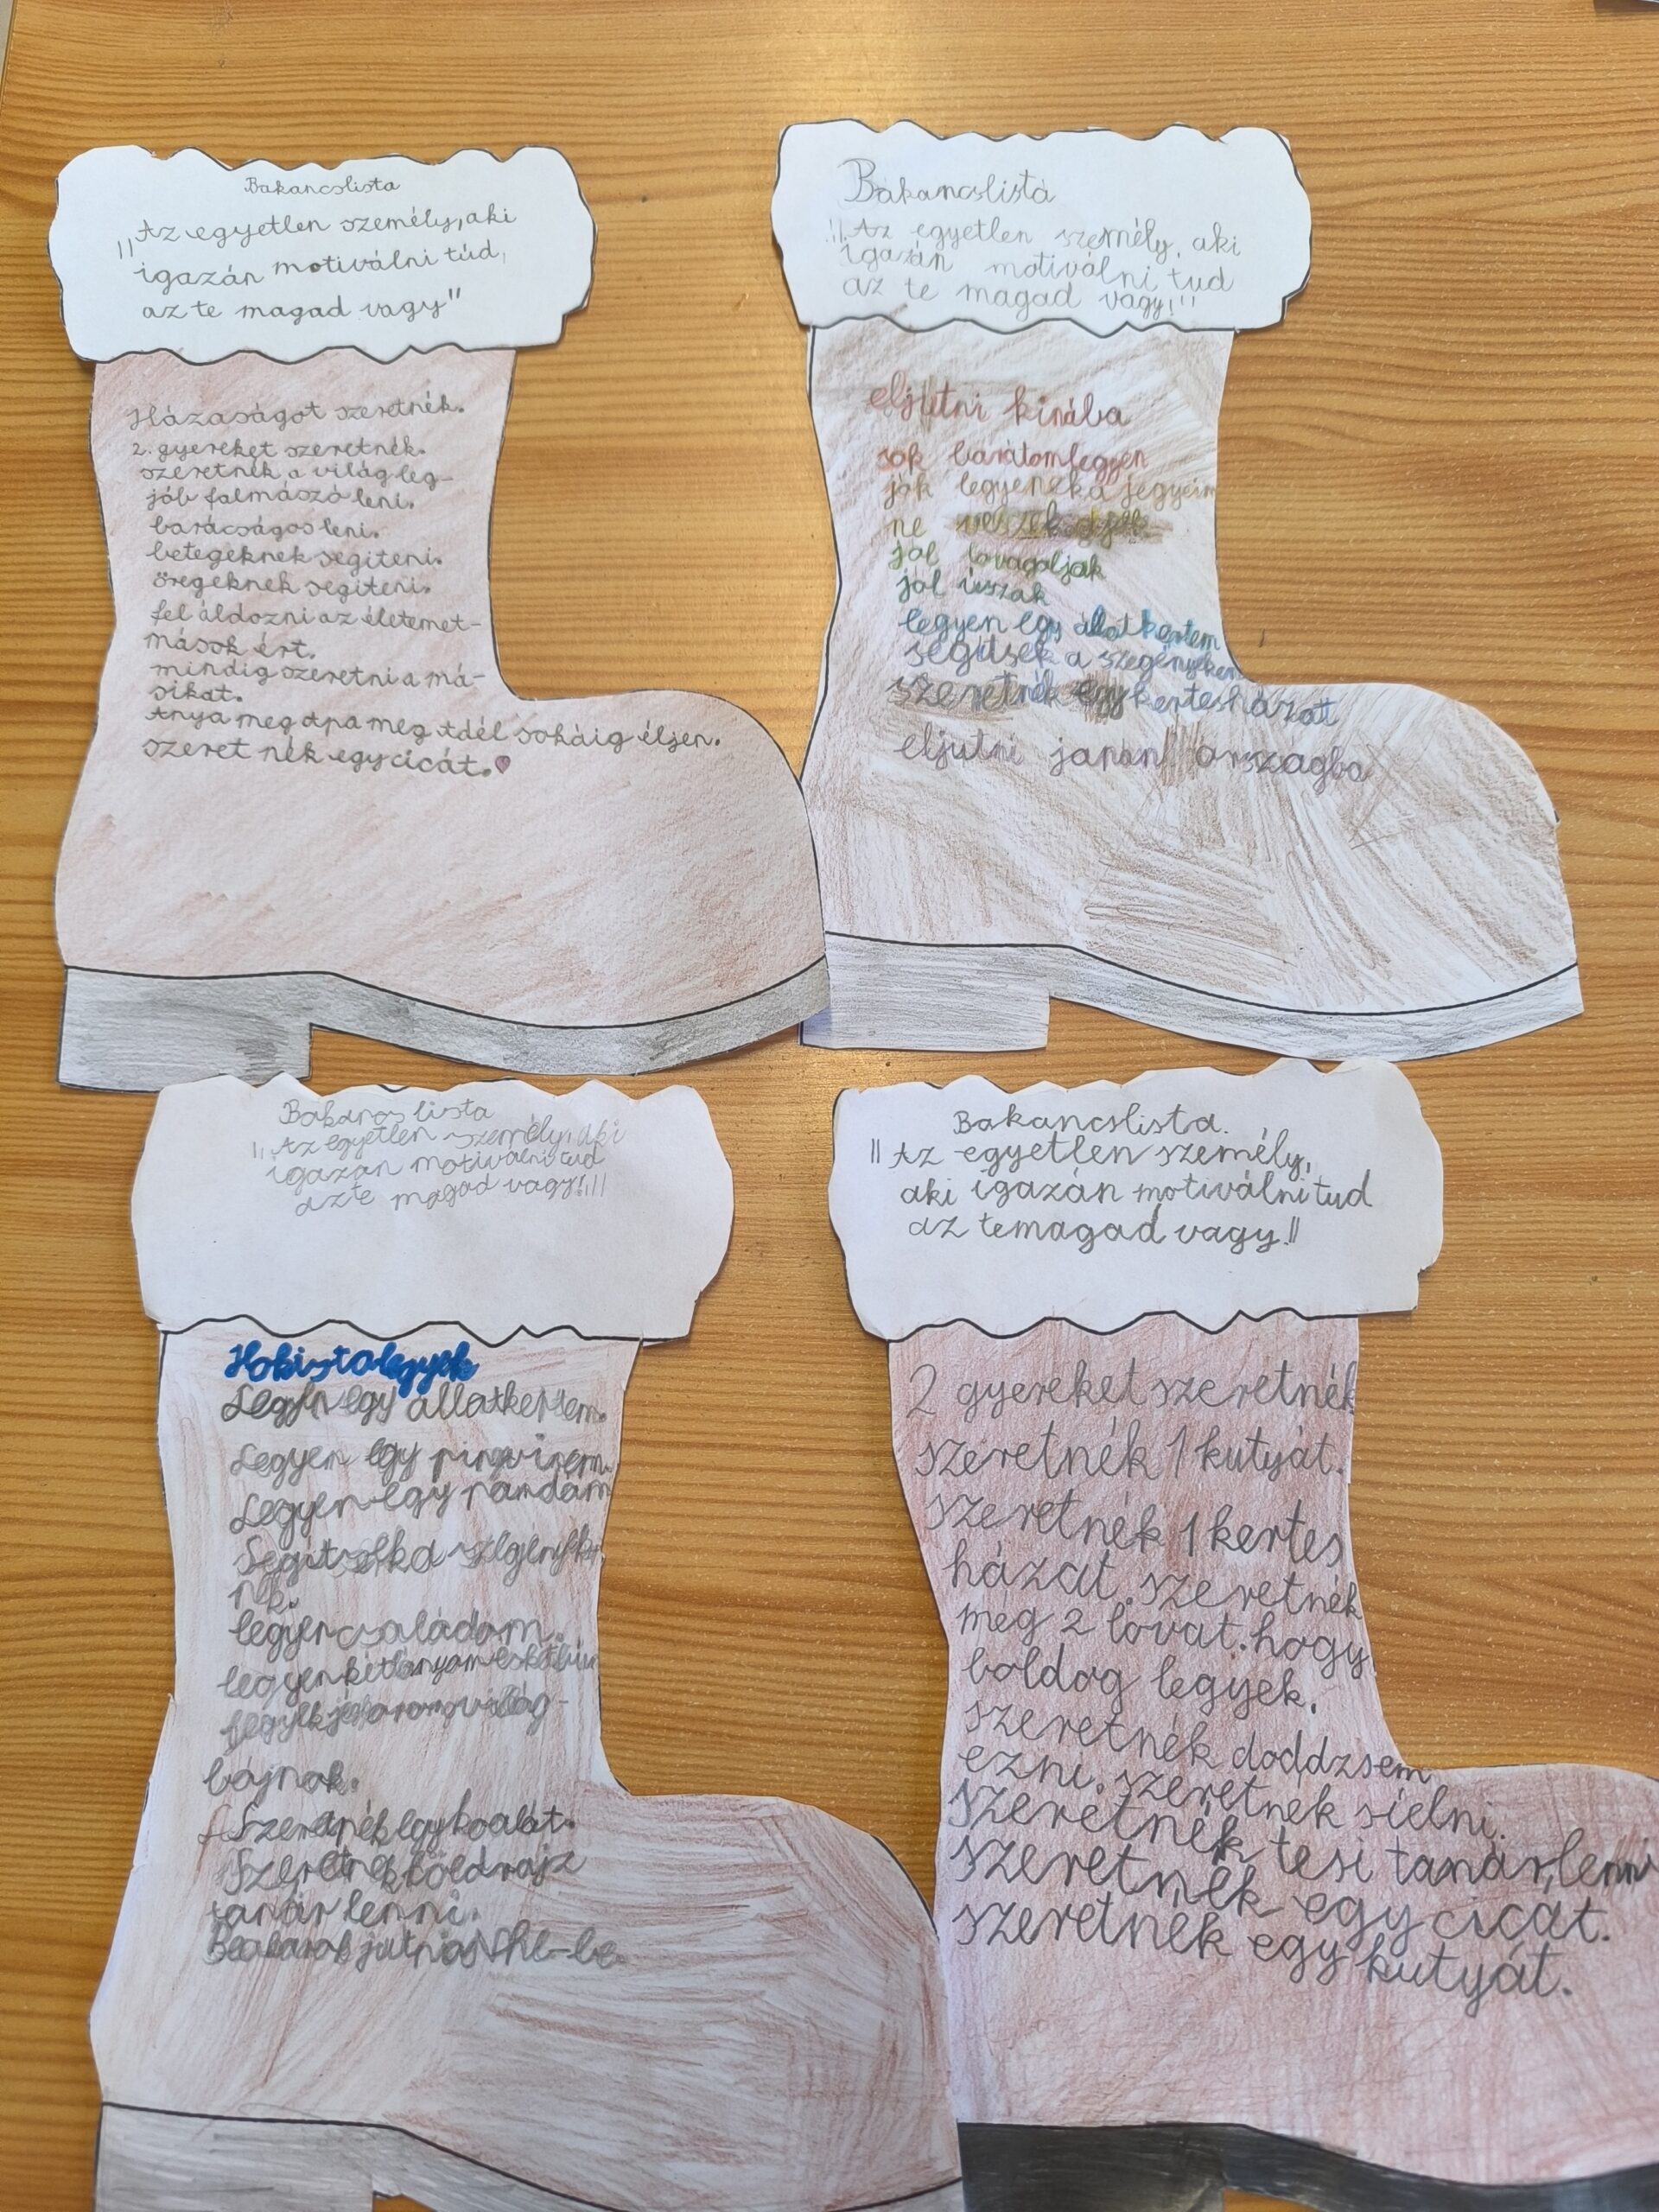 Bakancslista
"Az egyetlen személy, aki
igazán motiválni túd,
az te magad vagy"
Házaságot szeretnék.
2. gyereket szeretnék.
szeretnék a világ leg-
jób falmászó leni.
barácságos leni.
betegeknek segiteni.
öregeknek segiteni.
fel áldozni az életemet-
mások ért.
mindig szeretni a má-
sikat.
Anya meg Apa meg Adél sokáig éljen.
szeret nék egy cicát.
Bakancslista
"Az egyetlen személy, aki
igazán motiválni tud
az te magad vagy!"
eljutni kinába
sok barátom legyen
jók legyenek a jegyeim
ne
jól lovagoljak
jól úszak
legyen egy állatkertem
segitsek a szegényeken
szeretnék egy kertesházat
eljutni japán országba
Bakancslista
"Az egyetlen személy, aki
igazán motiválni tud
az te magad vagy!"
Hokista legyek
Legyen egy állatkertem.
Legyen egy pingvinem.
Legyen egy pandám
Segitsek a szegények-
nek.
legyen családom.
legyen két lányom és két
legyek világ-
bajnok.
Szeretnék egy koalát.
Szeretnék földrajz
tanár lenni.
Be akarok jutni az Nhl-be
Bakancslista.
"Az egyetlen személy,
aki igazán motiválni tud
az temagad vagy!"
2 gyereket szeretnék
szeretnék 1 kutyát.
szeretnék 1 kertes
házat. szeretnék
meg 2 lovat. hogy
boldog legyek.
szeretnék doddzsem
ezni. szeretnek sielni.
szeretnék tesi tanár lenni
szeretnék egy cicat.
szeretnék egy kutyát.